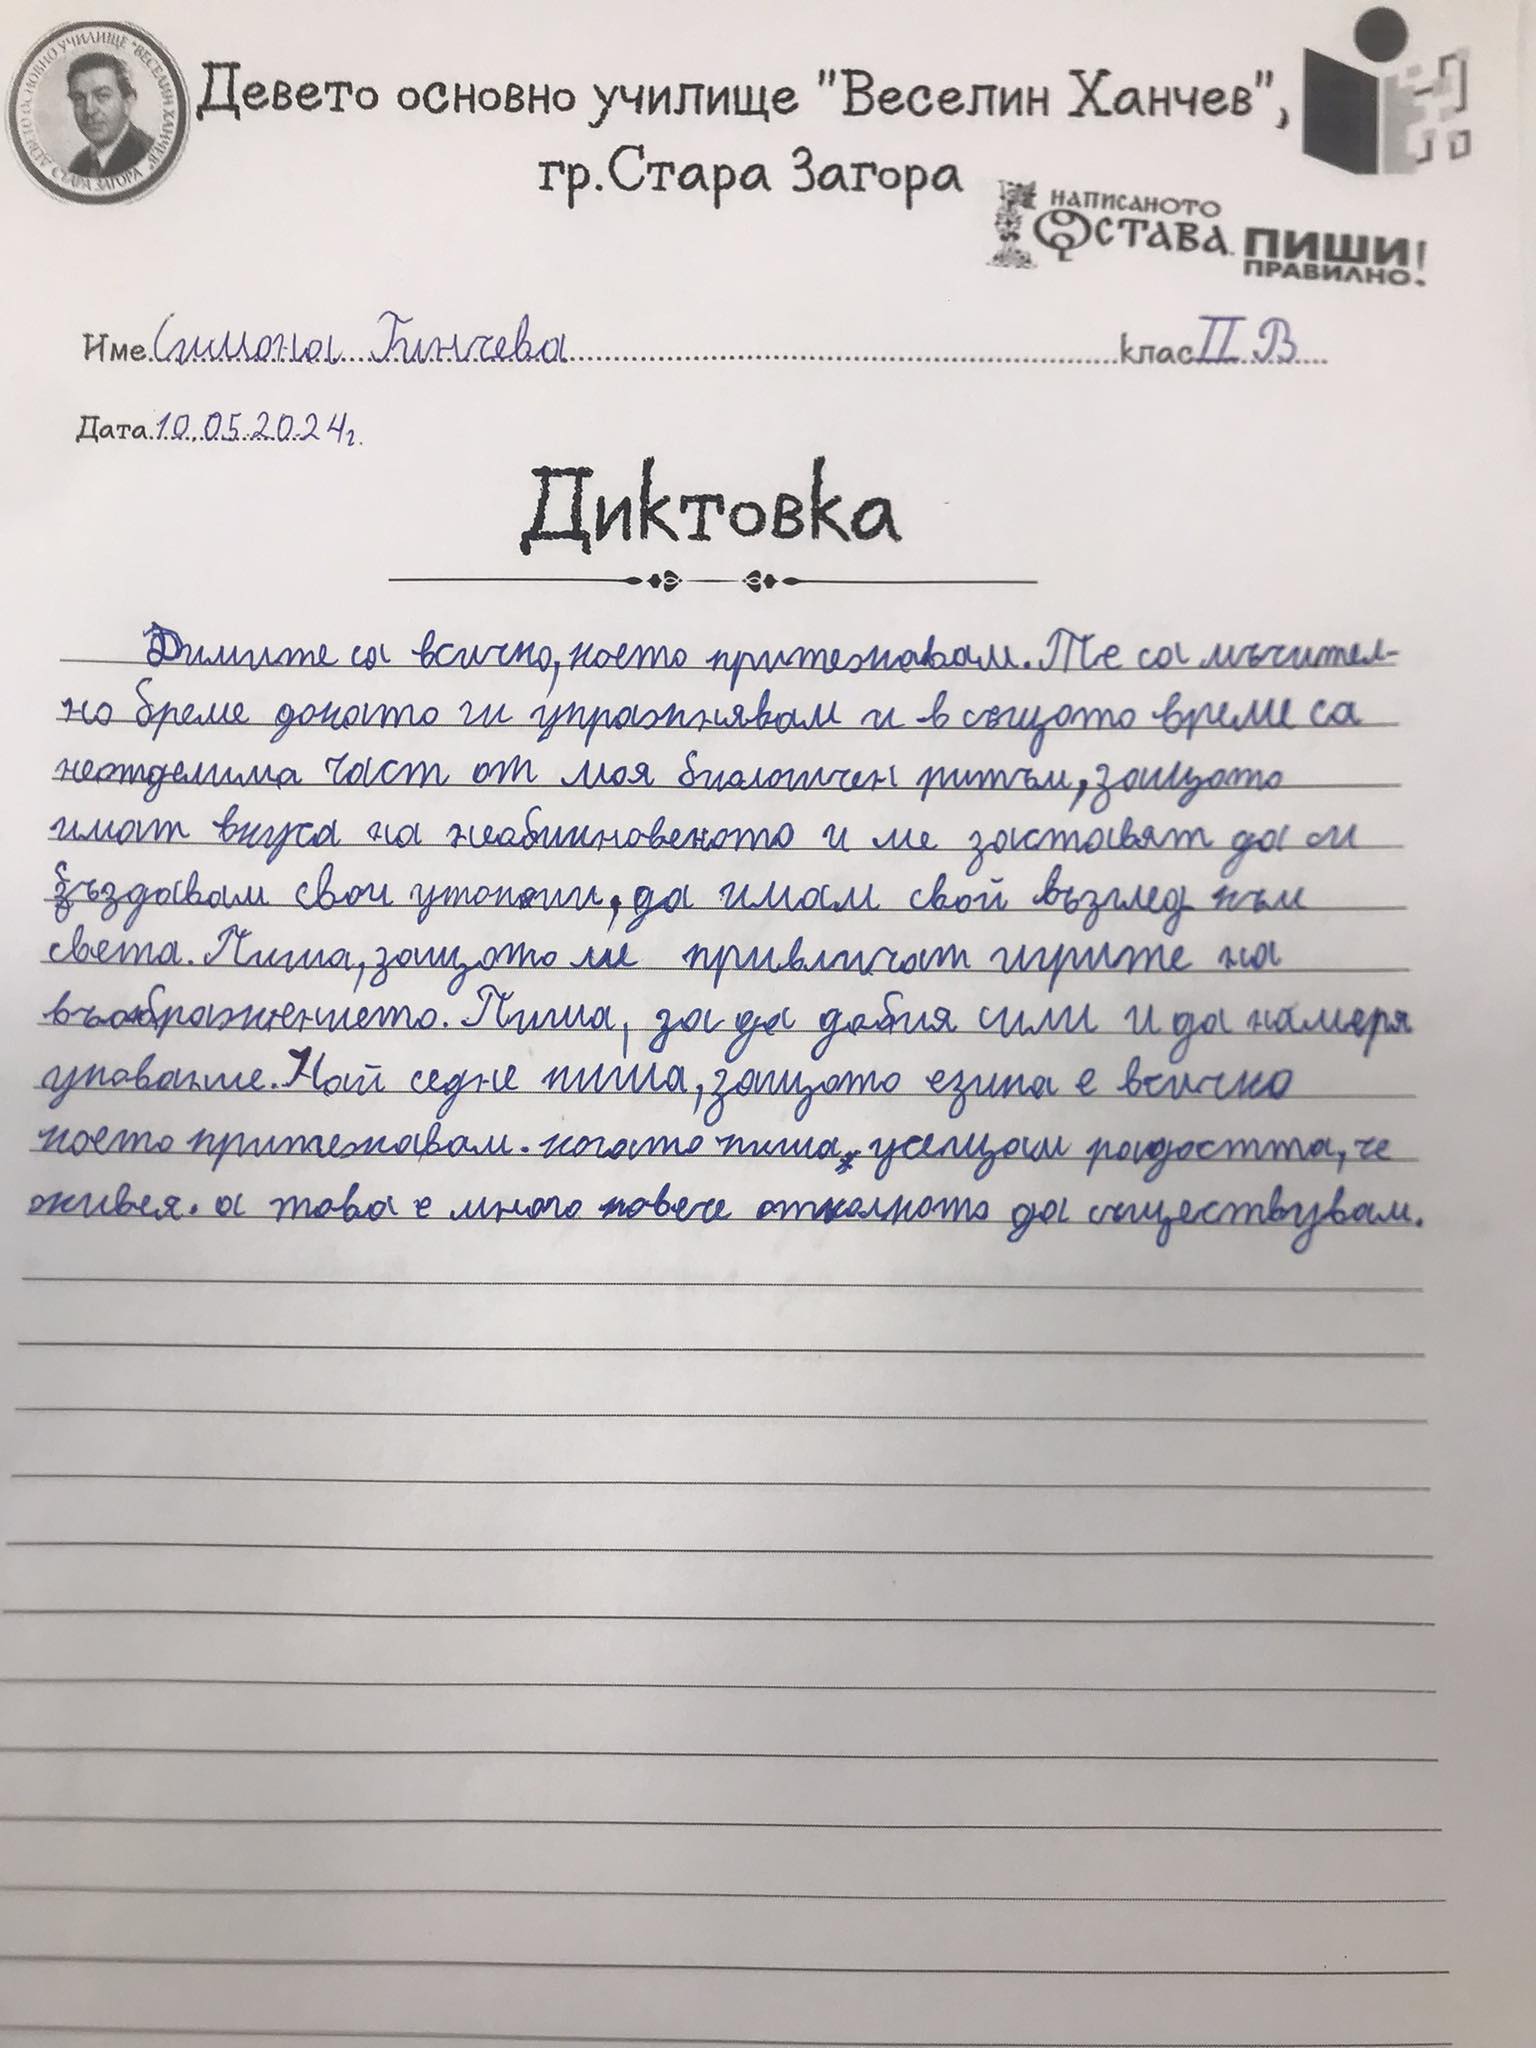 ДЕВЕТО ОСНОВНО УЧИЛИЩЕ "ВЕСЕЛИН ХАНЧЕВ" СТАРА ЗАГОРА
Девето основно училище "Веселин Ханчев",
гр.Стара Загора
НАПИСАНОТО
ОСТАВА. ПИШИ
ПРАВИЛНО!
Име Симона Гинчева клас II В
Дата 10.05.2024г.
Диктовка
Думите са всичко, което притежавам. Те са мъчител-
но бреме докато ги упражнявам и в същото време са
неотделима част от моя биологичен ритъм, защото
имат вкуса на необикновеното и ме заставят да си
създавам свои утопии, да имам свой възглед към
света. Пиша, защото ме привличат игрите на
въображението. Пиша, за да добия сили и да намеря
упование. Най седне пиша, защото езика е всичко
което притежавам. когато пиша, усещам радостта, че
живея. а това е много повече отколкото да съществувам.